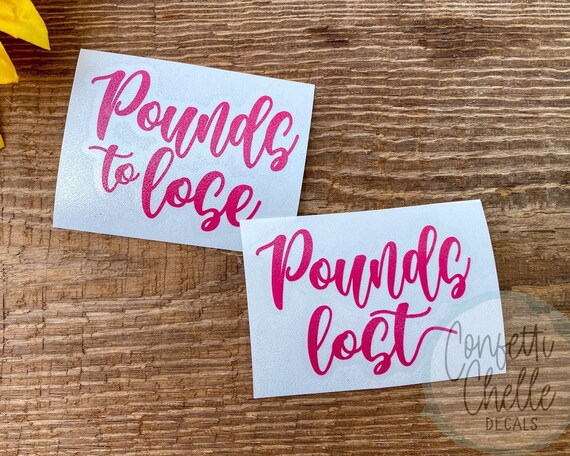 Pounds
to lose
Pounds
lost
Confetti
Chelle
DECALS